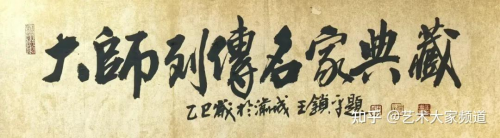 大師列傳名家典藏
乙巳歲於滿城王鎖字題
知乎 @艺术大家频道